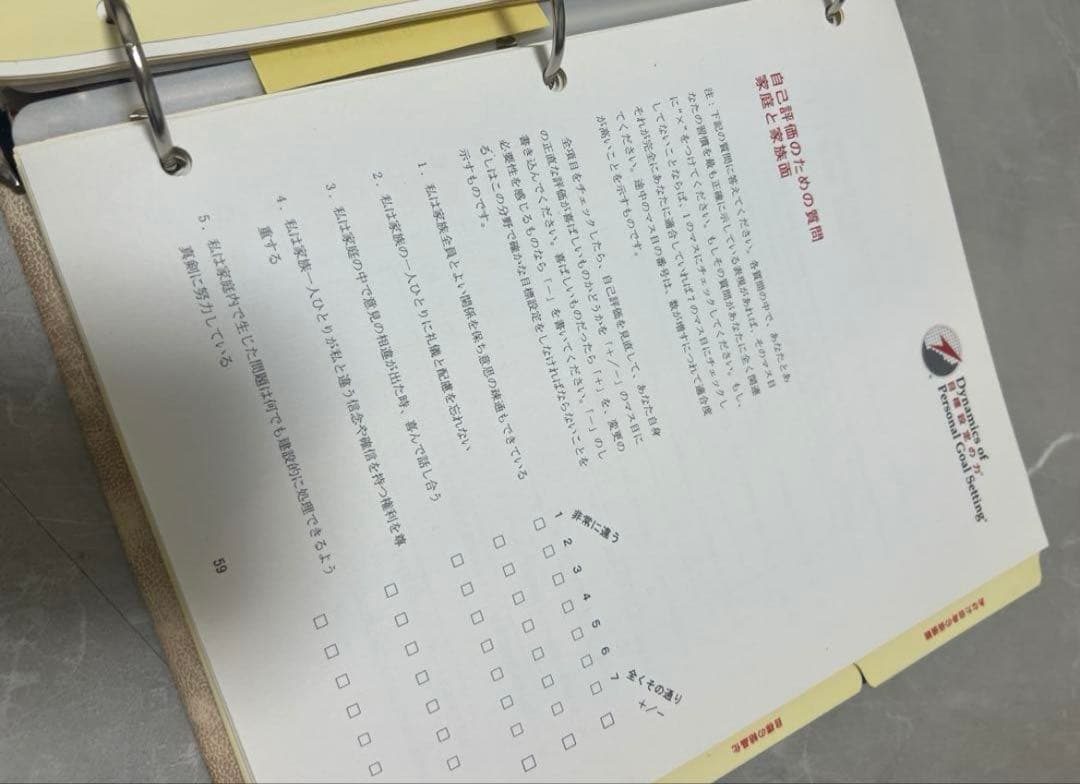 Dynamics of
目標設定の力
Personal Goal Setting
自己評価のための質問
家庭と家族面
注：下記の質問に答えてください。各質問の中で、あなたとあ
なたの習慣を最も正確に示している表現があれば、そのマス目
に“×”をつけてください。もしその質問があなたに全く関連
してないことならば、1のマスにチェックしてください。もし、
それが完全にあなたに適合していれば7のマス目にチェックし
てください。途中のマス目の番号は、数が増すにつれて適合度
が高いことを示すものです。
全項目をチェックしたら、自己評価を見直して、あなた自身
の正直な評価が喜ばしいものかどうかを「+/-」のマス目に
書き込んでください。喜ばしいものだったら「+」を、変更の
必要性を感じるものなら「-」を書いてください。「-」のし
るしはこの分野で確かな目標設定をしなければならないことを
示すものです。
非常に違う
全くその通り
1 2 3 4 5 6 7 ×/-
1. 私は家族全員とよい関係を保ち意思の疎通もできている
2. 私は家族の一人ひとりに礼儀と配慮を忘れない
3. 私は家庭の中で意見の相違が出た時、喜んで話し合う
4. 私は家族一人ひとりが私と違う信念や確信を持つ権利を尊
重する
5. 私は家庭内で生じた問題は何でも建設的に処理できるよう
真剣に努力している
59
あなた自身の価値観
目標の結晶化